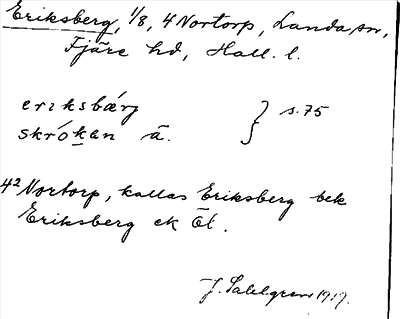 Eriksberg, 1/8, 4 Nortorp, Landa sn,
Fjäre hd, Hall. l.
eriksbærj } s. 75
skróken ä.
4² Nortorp, kallas Eriksberg bek
Eriksberg ek Öl.
J. Sahlgren 1917.